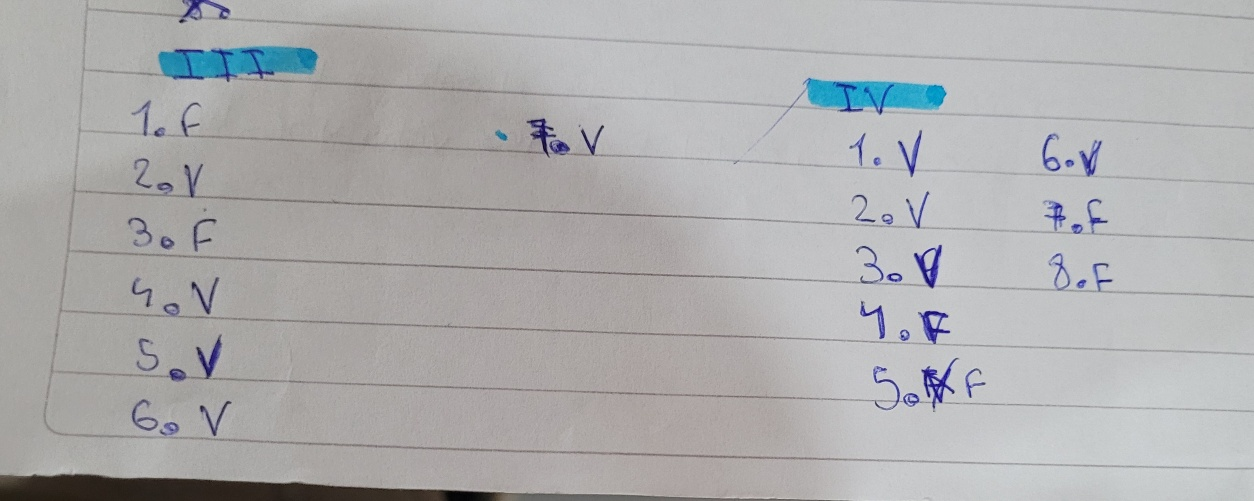 III
1. F
2. V
3. F
4. V
5. V
6. V
7. V
IV
1. V
2. V
3. V
4. F
5. F
6. V
7. F
8. F